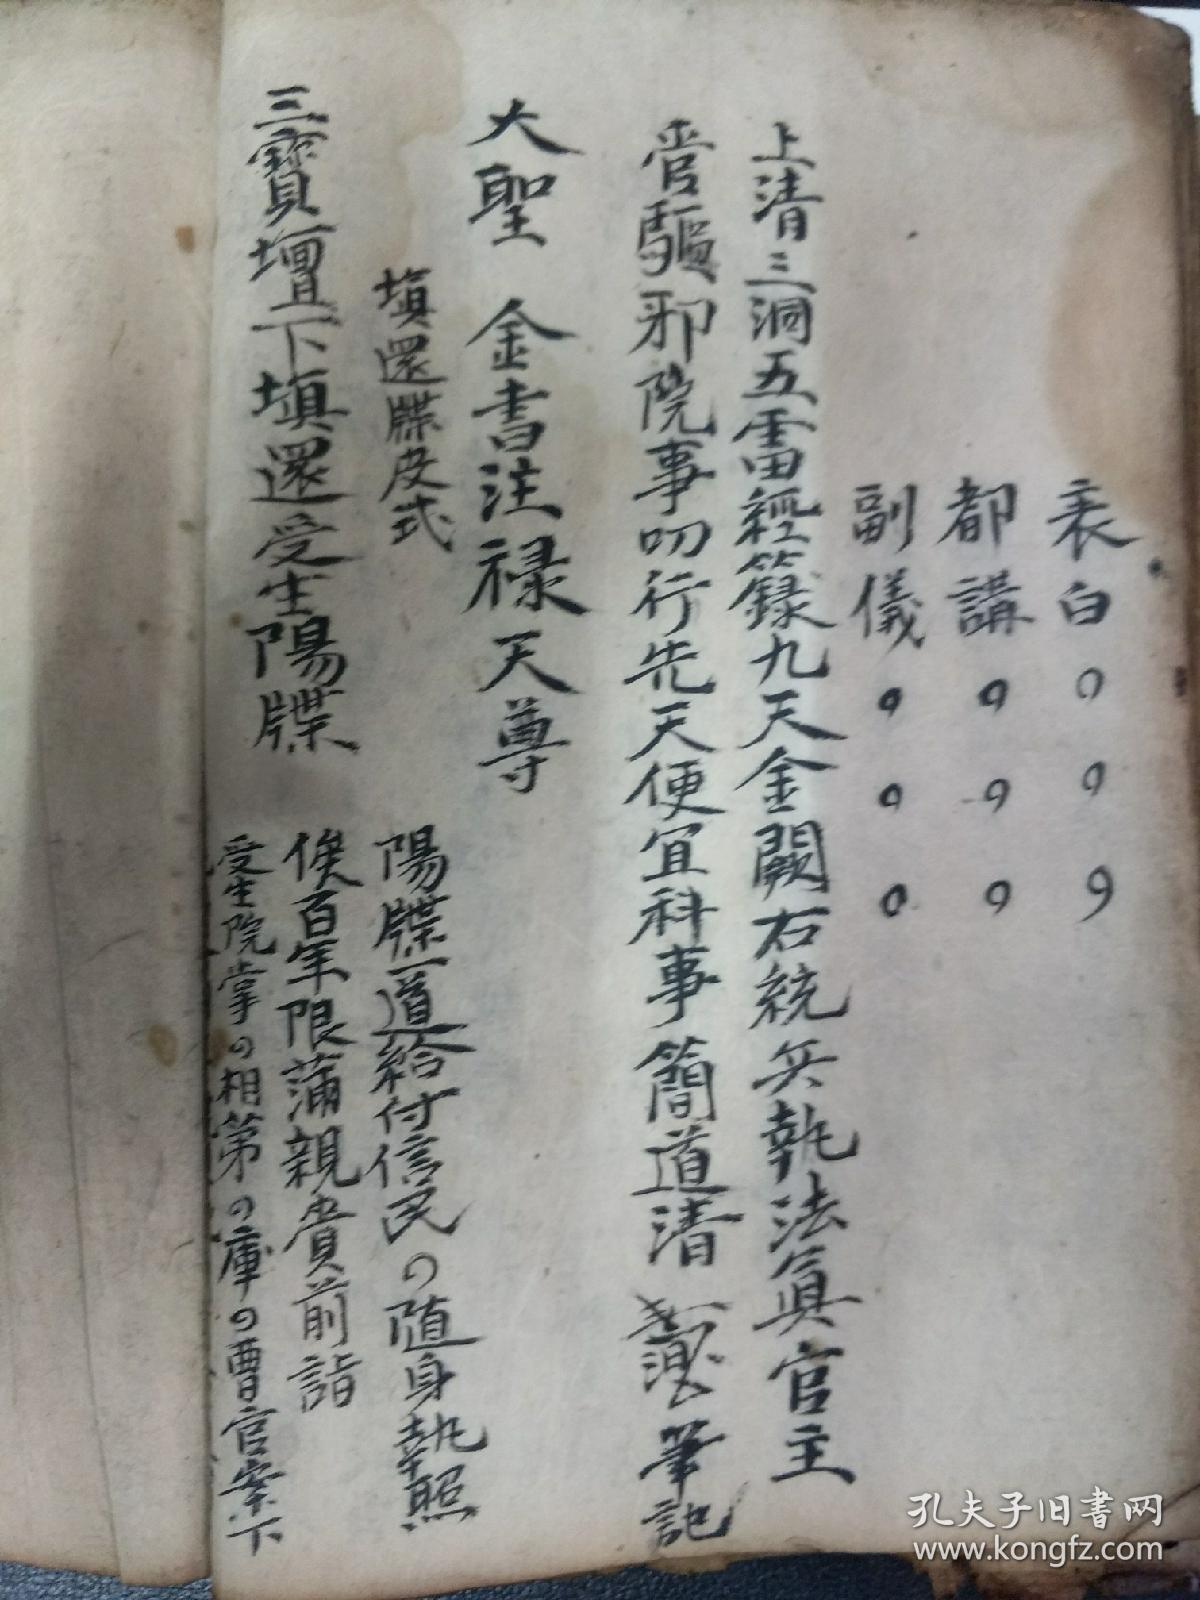 表白
都講
副儀
上清三洞五雷經籙九天金闕右統兵執法真官主
管驅邪院事叨行先天便宜科事簡道清 筆記
大聖 金書注禄天尊
填還牒皮式
三寶壇下填還受生陽牒
陽牒一道給付信民の随身執照
俟百年限滿親賫前詣
受生院掌の相第の庫の曹官案下
孔夫子旧书网
www.kongfz.com